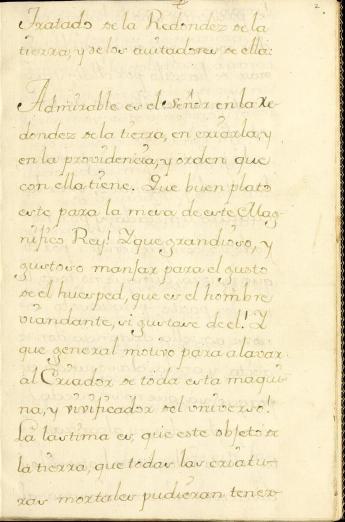 2
Tratado de la Redondez de la
tierra, y de los avitadores de ella:
Admirable es el Señor en la Re-
dondez de la tierra, en criarla, y
en la providencia, y orden que
con ella tiene. Que buen plato
este para la mesa de este Mag-
nifico Rey! Y que grandioso, y
gustoso manjar para el gusto
de el huesped, que es el hombre
viandante, si gustase de el! Y
que general motivo para alavar
al Criador de toda esta maqui-
na, y vivificador del universo!
La lastima es, que este objeto de
la tierra, que todas las criatu-
ras mortales pudieran tener